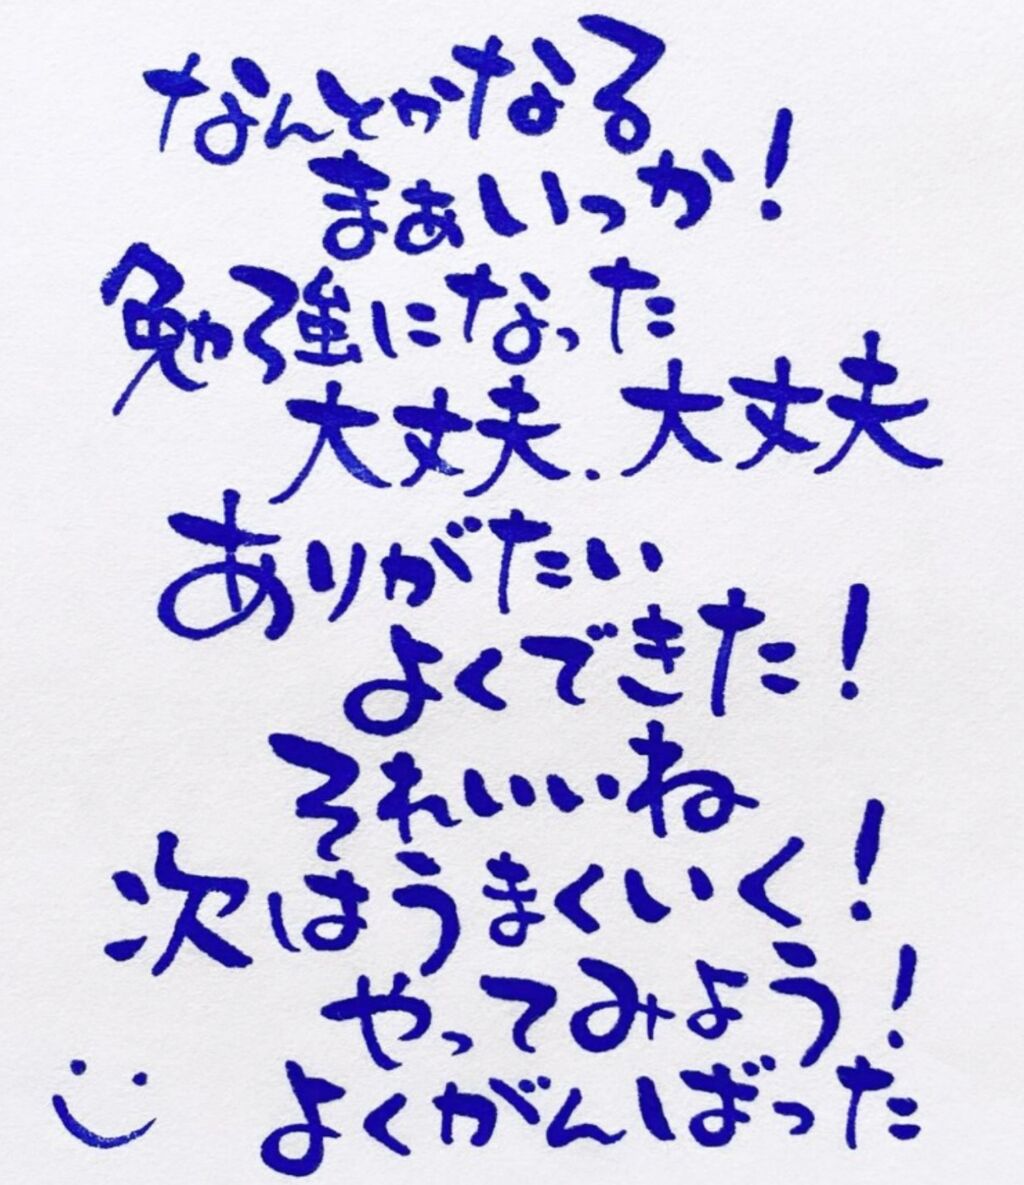 なんとかなる
まぁいっか！
勉強になった
大丈夫．大丈夫
ありがたい
よくできた！
それいいね
次はうまくいく！
やってみよう！
よくがんばった